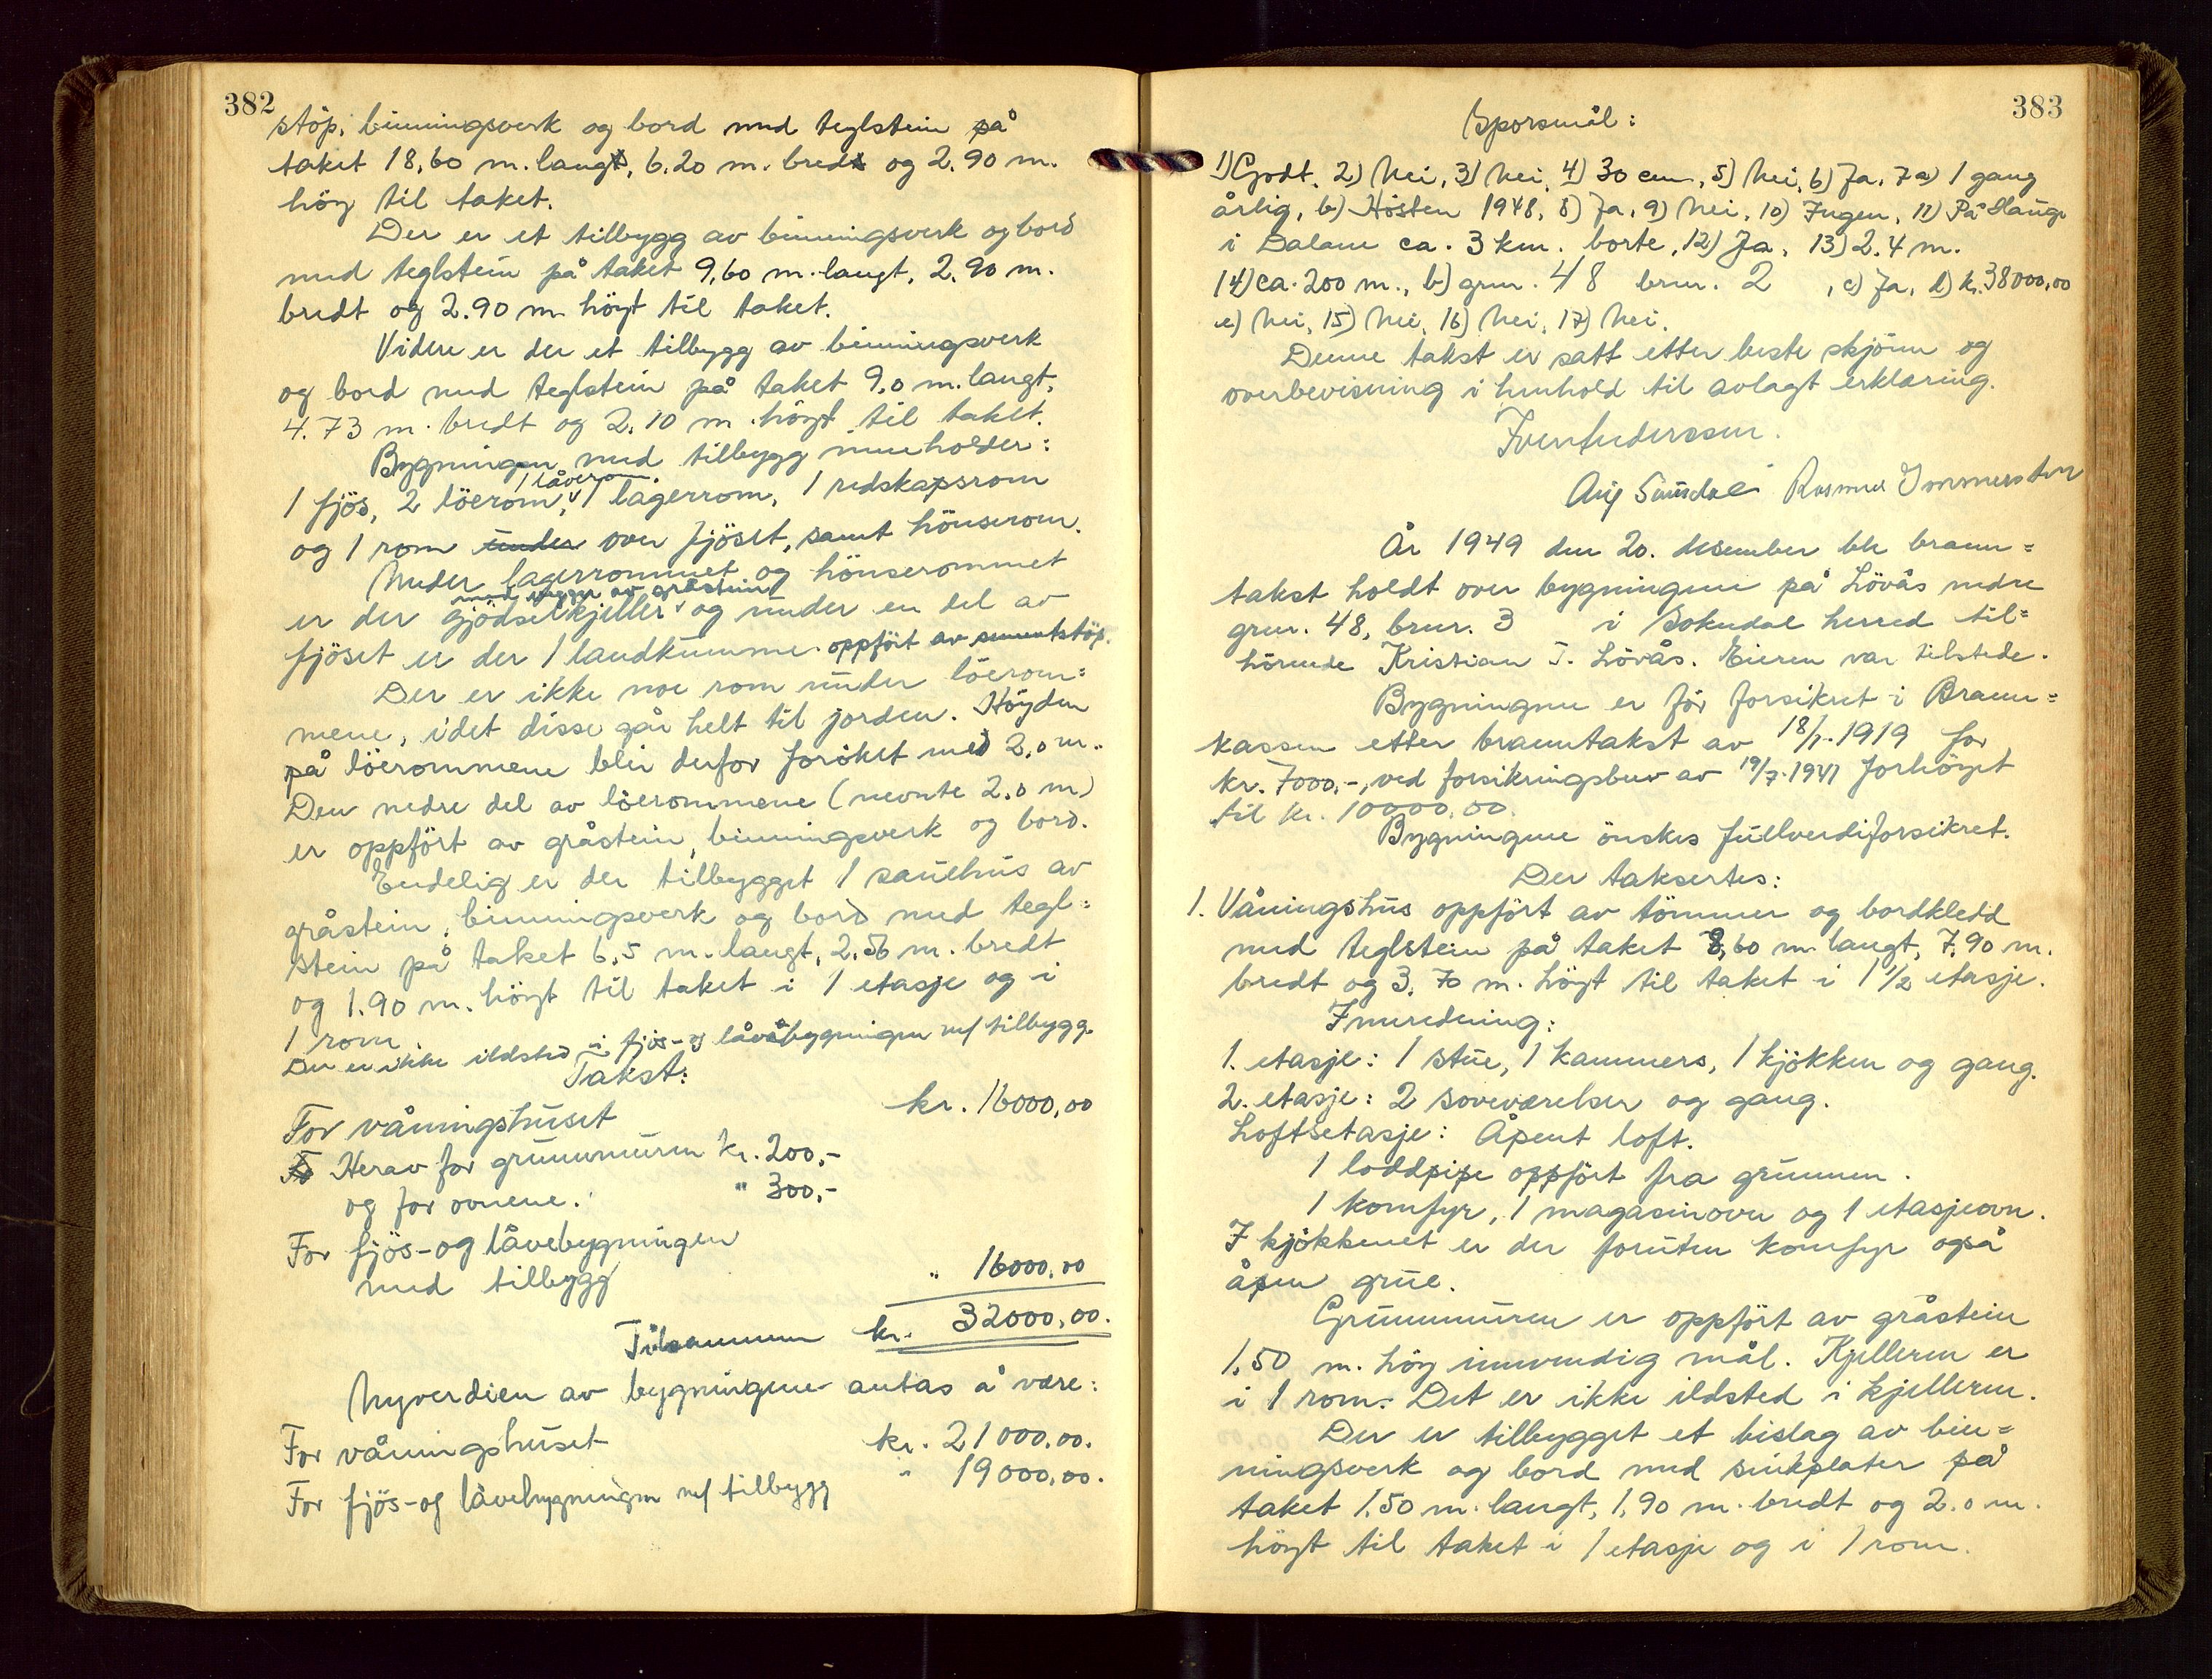 382
støp, binningsverk og bord med teglstein på
taket 18,60 m. langt, 6.20 m. bredt og 2.90 m.
høy til taket.
Der er et tilbygg av binningsverk og bord
med teglstein på taket 9,60 m. langt, 2.90 m.
bredt og 2.90 m høyt til taket.
Videre er der et tilbygg av binningsverk
og bord med teglstein på taket 9,0 m. langt,
4.73 m. bredt og 2.10 m. høyt til taket.
Bygningen med tilbygg inneholder:
1 låverom.
1 fjös, 2 löerom, 1 lagerrom, 1 redskapsrom
og 1 rom under over fjöset, samt hönserom.
Under lagerrommet og hönserommet
med vegger av gråstein
er der gjödselkjeller og under en del av
fjöset er der 1 landkumme oppfört av sementstöp.
Der er ikke noe rom under löerom=
mene, idet disse går helt til jorden. Höyden
på löerommene blir derfor foröket med 2.0 m.
Den nedre del av löerommene (nevnte 2.0 m)
er oppfört av gråstein, binningsverk og bord.
Endelig er der tilbygget 1 sauehus av
gråstein, binningsverk og bord med tegl=
stein på taket 6,5 m. langt, 2,56 m. bredt
og 1.90 m. höyt til taket i 1 etasje og i
1 rom.
Der er ikke ildsted i fjös- og låvebygningen m/ tilbygg.
Takst:
For våningshuset kr. 16000,00
Herav for grunnmuren kr. 200,-
og for ovnene. " 300,-
For fjös- og låvebygningen
med tilbygg " 16000,00
Tilsammen kr. 32000,00.
Nyverdien av bygningene antas å være:
For våningshuset kr. 21000,00.
For fjös- og låvebygningen m/ tilbygg " 19000,00.
383
Spörsmål:
1) Godt, 2) Nei, 3) Nei, 4) 30 cm, 5) Nei, 6) Ja, 7 a) 1 gang
årlig, b) Hösten 1948, 8) Ja, 9) Nei, 10) Ingen, 11) På Hauge
i Dalane ca. 3 km. borte, 12) Ja, 13) 2.4 m.
14) ca. 200 m., b) gnr. 48 bnr. 2 , c) Ja, d) kr. 38000,00
e) Nei, 15) Nei, 16) Nei, 17) Nei.
Denne takst er satt etter beste skjönn og
overbevisning i henhold til avlagt erklæring.
Aug Rasmus
År 1949 den 20. desember ble brann=
takst holdt over bygningene på Lövås nedre
gnr. 48, bnr. 3 i Sokndal herred til=
hörende Kristian T. Lövås. Eieren var tilstede.
Bygningene er för forsikret i Brann=
kassen etter branntakst av 18/7-1919 for
kr. 7000,-, ved forsikringsbrev av 19/7-1941 forhöyet
til kr. 10000,00.
Bygningene önskes fullverdiforsikret.
Der taksertes:
1. Våningshus oppfört av tömmer og bordkledd
med teglstein på taket 8,60 m langt, 7,90 m.
bredt og 3,70 m. höyt til taket i 1 1/2 etasje.
Innredning:
1. etasje: 1 stue, 1 kammers, 1 kjökken og gang.
2. etasje: 2 soveværelser og gang.
Loftsetasje: Åpent loft.
1 loddpipe oppfört fra grunnen.
1 komfyr, 1 magasinovn og 1 etasjeovn.
I kjökkenet er der foruten komfyr også
åpen grue.
Grunnmuren er oppfört av gråstein
1,50 m. höy innvendig mål. Kjelleren er
i 1 rom. Det er ikke ildsted i kjelleren.
Der er tilbygget et bislag av bin=
ningsverk og bord med sinkplater på
taket 1,50 m. langt, 1,90 m. bredt og 2.0 m.
höyt til taket i 1 etasje og i 1 rom.